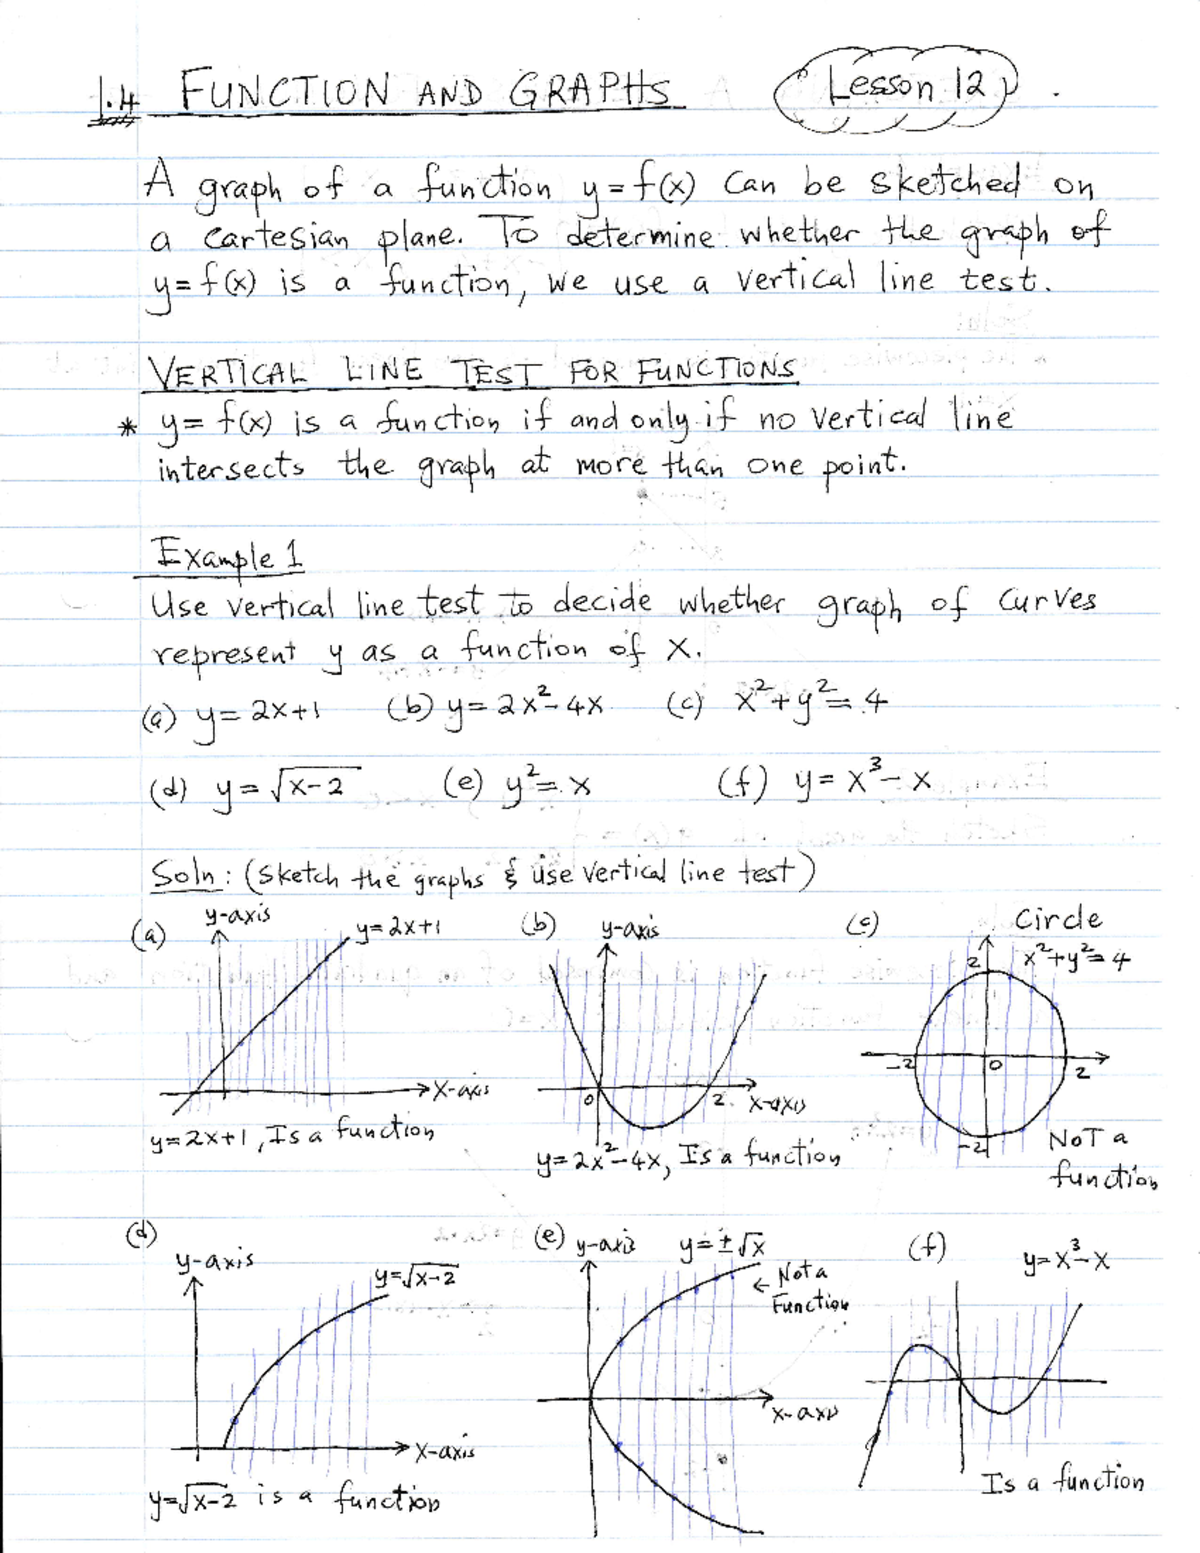 1.4 FUNCTION AND GRAPHS
Lesson 12
A graph of a function y = f(x) can be sketched on
a cartesian plane. To determine whether the graph of
y = f(x) is a function, we use a vertical line test.
VERTICAL LINE TEST FOR FUNCTIONS
* y = f(x) is a function if and only if no vertical line
intersects the graph at more than one point.
Example 1
Use vertical line test to decide whether graph of curves
represent y as a function of x.
(a) y = 2x+1 (b) y = 2x² - 4x (c) x² + y² = 4
(d) y = √x-2 (e) y² = x (f) y = x³ - x
Soln: (sketch the graphs & use vertical line test)
(a) y-axis y = 2x+1
x-axis
y = 2x+1, Is a function
(b) y-axis
0 2 x-axis
y = 2x² - 4x, Is a function
(c) Circle
x² + y² = 4
2
-2 0 2
-2
NOT a
function
(d)
y-axis
y = √x-2
x-axis
y = √x-2 is a function
(e) y-axis y = ± √x
← Not a
Function
x-axis
(f) y = x³ - x
Is a function